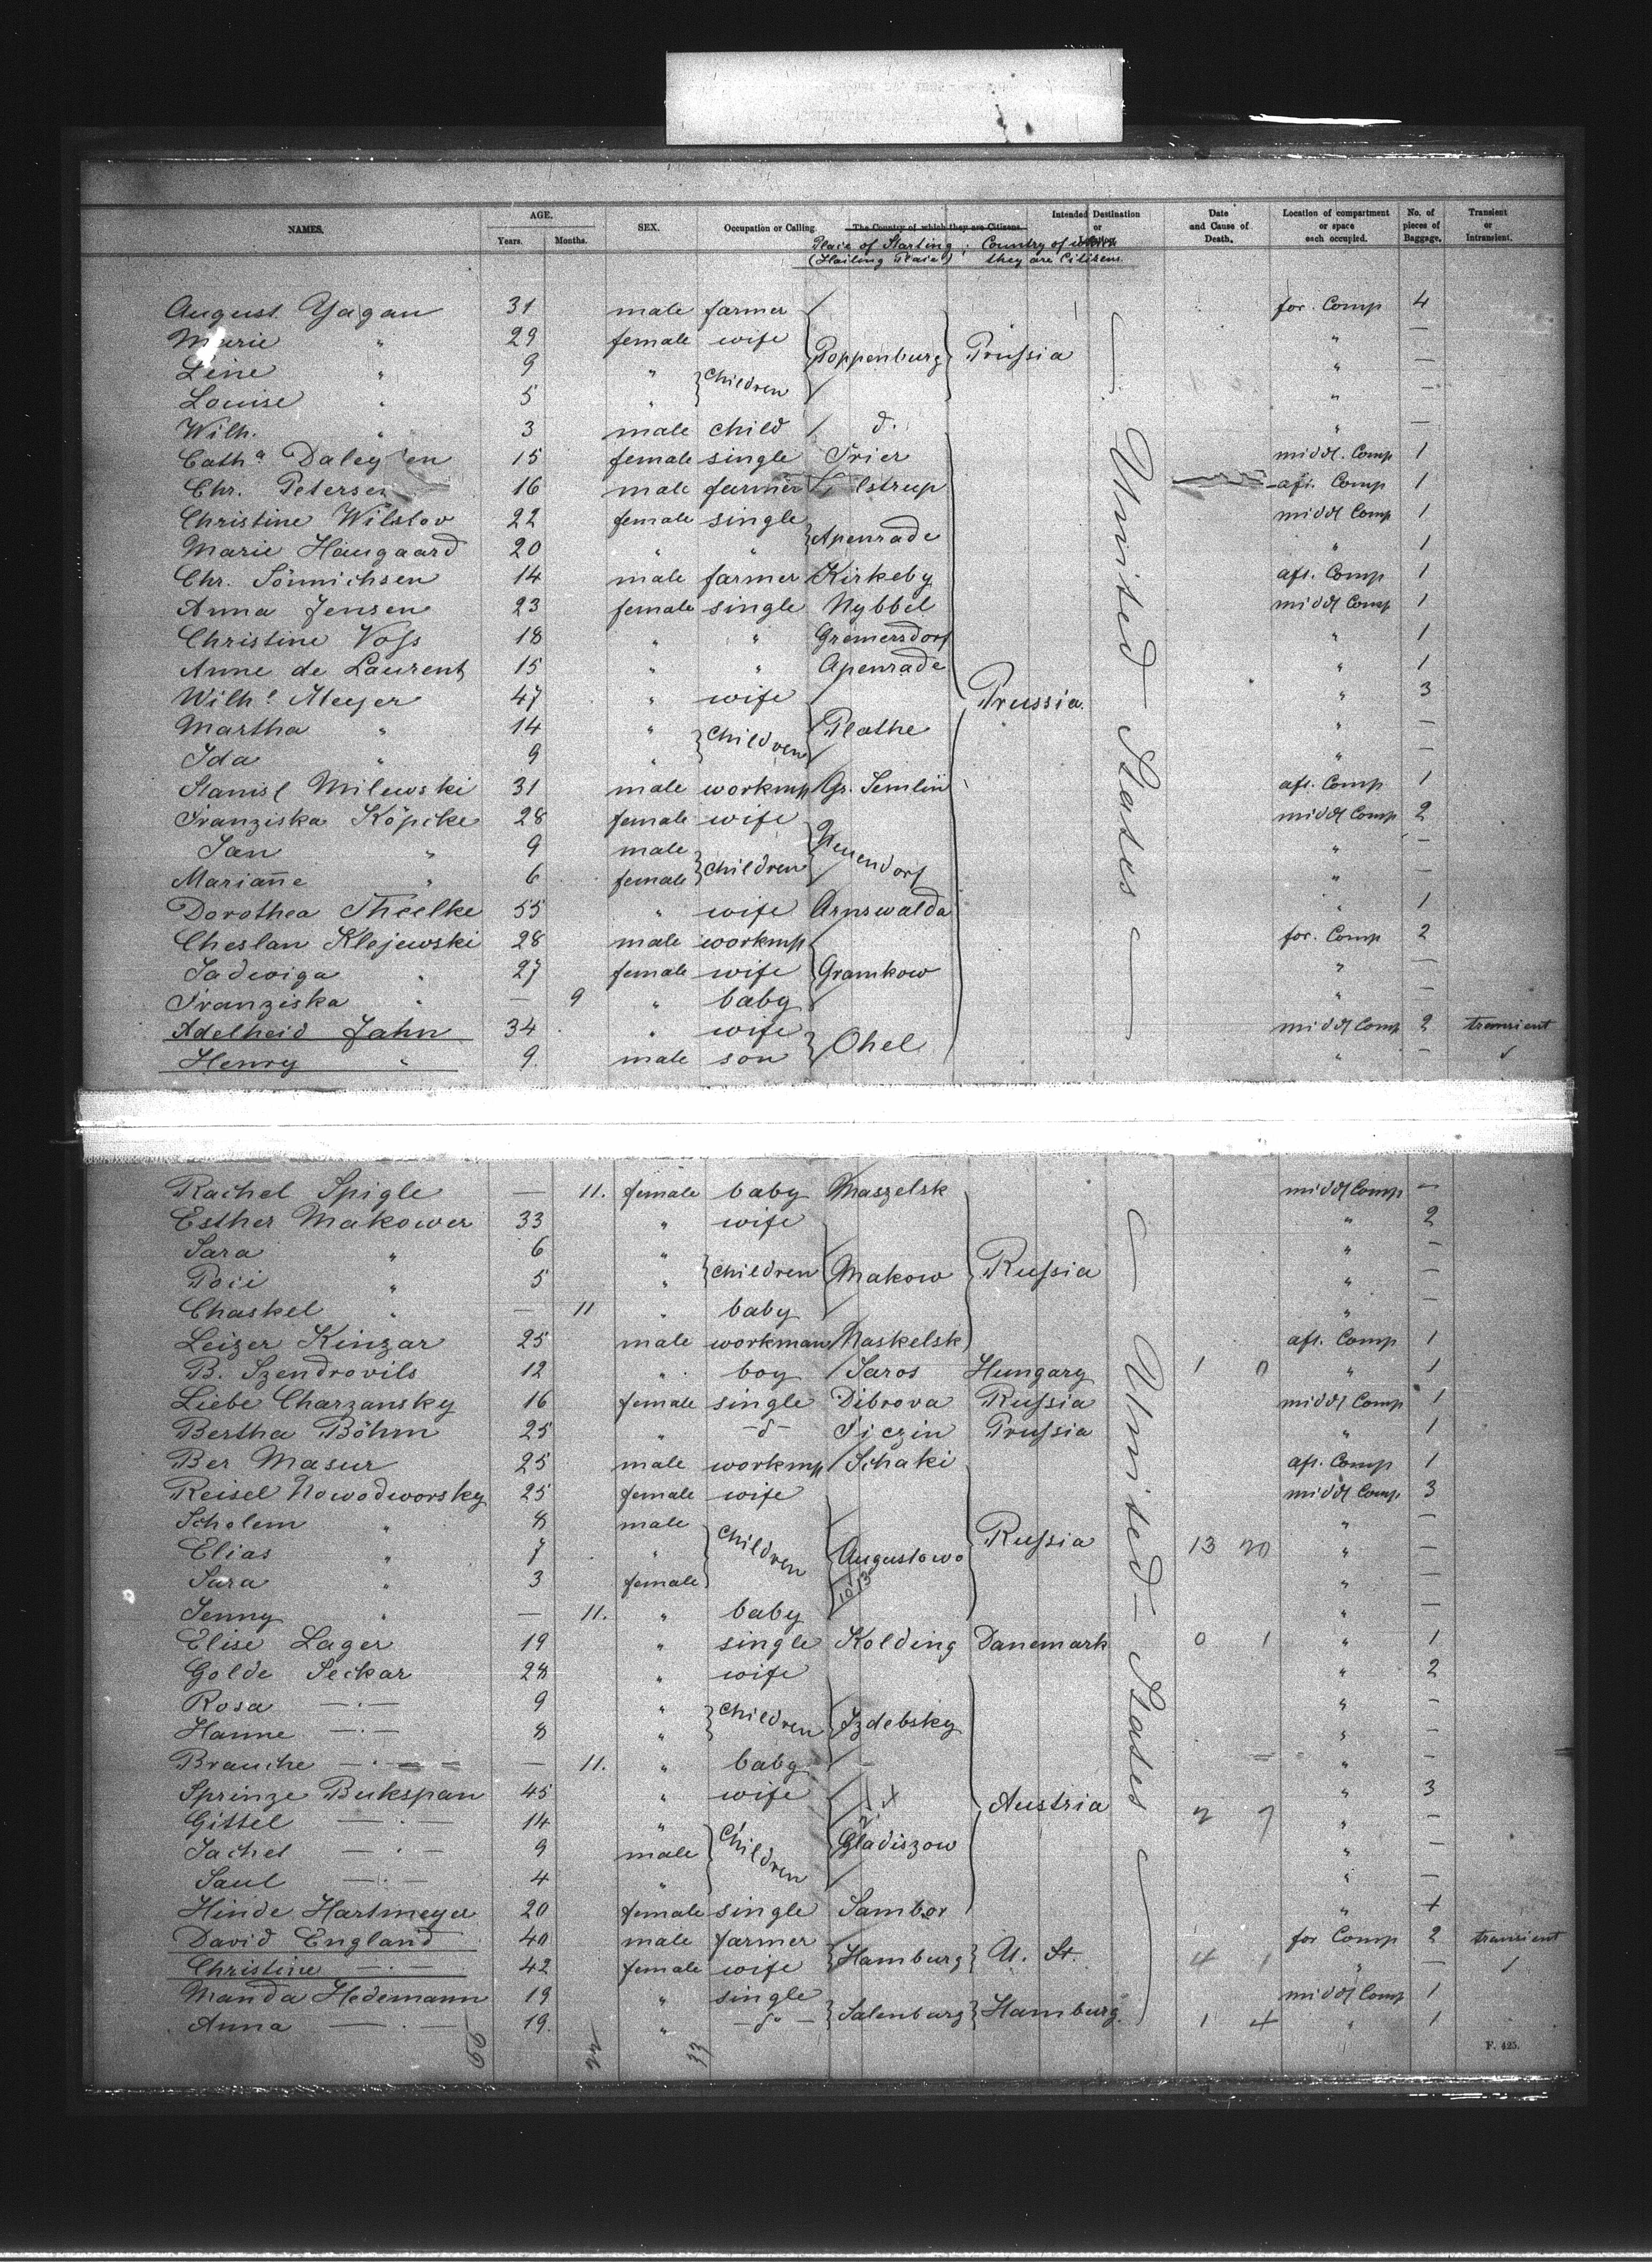 NAMES. AGE. Years. Months. SEX. Occupation or Calling. The Country of which they are Citizens. Intended Destination or Date and Cause of Death. Location of compartment or space each occupied. No. of pieces of Baggage. Transient or Intransient.
Place of Starting (Hailing Place) Country of which they are Citizens
August Yagan 31 male farmer for. Comp 4
Marie " 29 female wife Poppenburg Prussia " —
Line " 9 " children " —
Louise " 5 " " —
Wilh. " 3 male child d. " —
Cath.a Daleyden 15 female single Trier middl. Comp 1
Chr. Petersen 16 male farmer aft. Comp 1
Christine Wilslov 22 female single middl Comp 1
Marie Haugaard 20 " " Apenrade " 1
Chr. Sönnichsen 14 male farmer Kirkeby aft. Comp 1
Anna Jensen 23 female single Nybbel middl Comp 1
Christine Voss 18 " " Gremersdorf " 1
Anne de Laurent 15 " " Apenrade " 1
Wilh.e Meyer 47 " wife Prussia. " 3
Martha " 14 " children Plathe " —
Ida " 9 " " —
Stanisl Milewski 31 male workmp Gr. Semlin aft. Comp 1
Franziska Köpcke 28 female wife middl Comp 2
Jan " 9 male children Neuendorf " —
Mariañe " 6 female " —
Dorothea Theelke 55 " wife Arnswalda " 1
Cheslan Klejewski 28 male workmp for. Comp 2
Jadwiga " 27 female wife Gramkow " —
Franziska " — 9 " baby " —
Adelheid Jahn 34 " wife middl Comp 2 transient
Henry " 9. male son Ohel " —
United States
Rachel Spigle — 11. female baby Maszelsk middl Comp —
Esther Makower 33 " wife " 2
Sara " 6 " " —
Poii " 5 " children Makow Russia " —
Chaskel " — 11 " baby " —
Leizer Kinzar 25 male workman Naskelsk aft. Comp 1
B. Szendrovils 12 " boy Saros Hungary 1 0 " 1
Liebe Charzansky 16 female single Dibrova Russia middl Comp 1
Bertha Böhm 25 " —d— Ticzin Prussia " 1
Ber Masur 25 male workmp Schaki aft. Comp 1
Reisel Nowodworsky 25 female wife middl Comp 3
Scholem " 8 male " —
Elias " 7 " children Augustowo Russia 13 20 " —
Sara " 3 female " —
Jenny " — 11. " baby " —
Elise Lager 19 " single Kolding Danemark 0 1 " 1
Golde Seckar 28 " wife " 2
Rosa —·— 9 " children Izdebsky " —
Hanne —·— 8 " " —
Brauche —·— — 11. " baby " —
Sprinze Bukspan 45 " wife Austria " 3
Gittel —·— 14 " 2 7 " —
Jachel —·— 9 male children Gladiszow " —
Saul —·— 4 " " —
Hinde Hartmeyer 20 female single Sambor "
David England 40 male farmer for Comp 2 transient
Christine —·— 42 female wife Hamburg U. St. 4 1 " —
Manda Hedemann 19 " single middl Comp 1
Anna —·— 19. " —d— Salenburg Hamburg. 1 4 " 1
United States
22 33
F. 425.